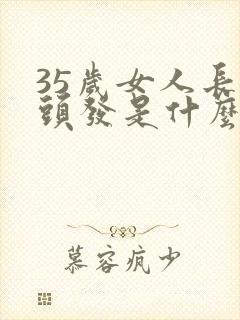 35歲女人長
頭發是什麼
慕容疯少